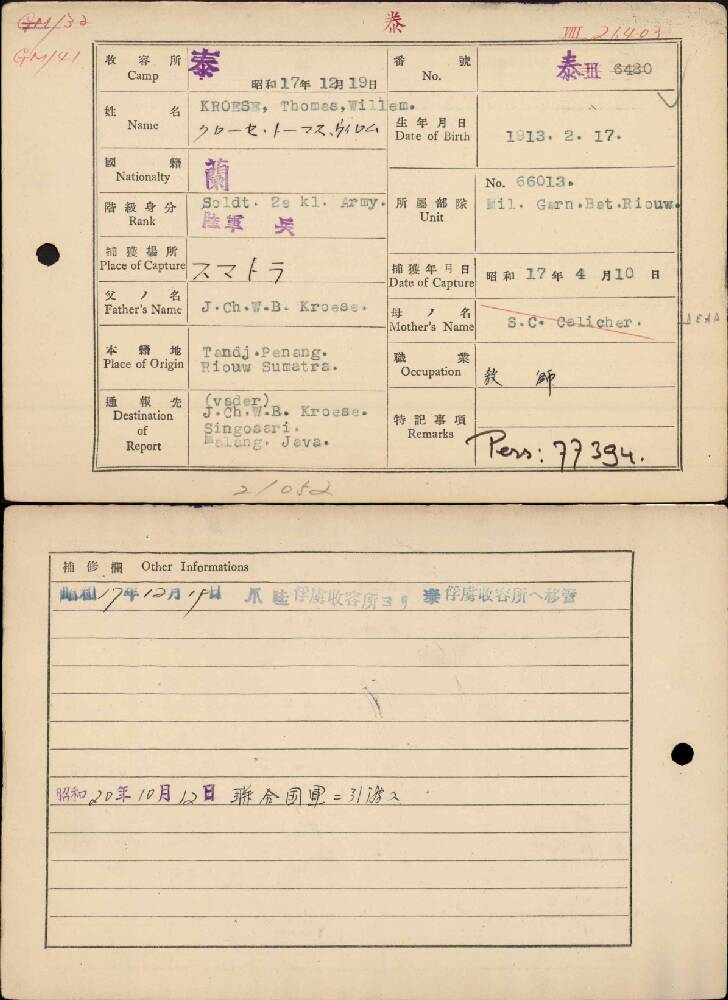 GM/32
泰
VIII 21403
GM/41
收容所
Camp
泰
昭和17年12月19日
番號
No.
泰III 6420
姓名
Name
KROESE, Thomas, Willem.
クローセ・トーマス、ヴィレム
生年月日
Date of Birth
1913. 2. 17.
國籍
Nationalty
蘭
階級身分
Rank
Soldt. 2e kl. Army.
陸軍 兵
所屬部隊
Unit
No. 66013.
Mil. Garn.Bat.Riouw.
捕獲場所
Place of Capture
スマトラ
捕獲年月日
Date of Capture
昭和 17年 4月10日
父ノ名
Father's Name
J.Ch.W.B. Kroese.
母ノ名
Mother's Name
S.C. Calicher.
DEAD
本籍地
Place of Origin
Tandj.Penang.
Riouw Sumatra.
職業
Occupation
教師
通報先
Destination
of
Report
(vader)
J.Ch.W.B. Kroese.
Singosari.
Malang. Java.
特記事項
Remarks
Pers: 77394.
21052
補修欄 Other Informations
昭和17年12月19日 爪哇俘虜收容所ヨリ 泰俘虜收容所ヘ移管
昭和20年10月12日 聯合国軍ニ引渡ス